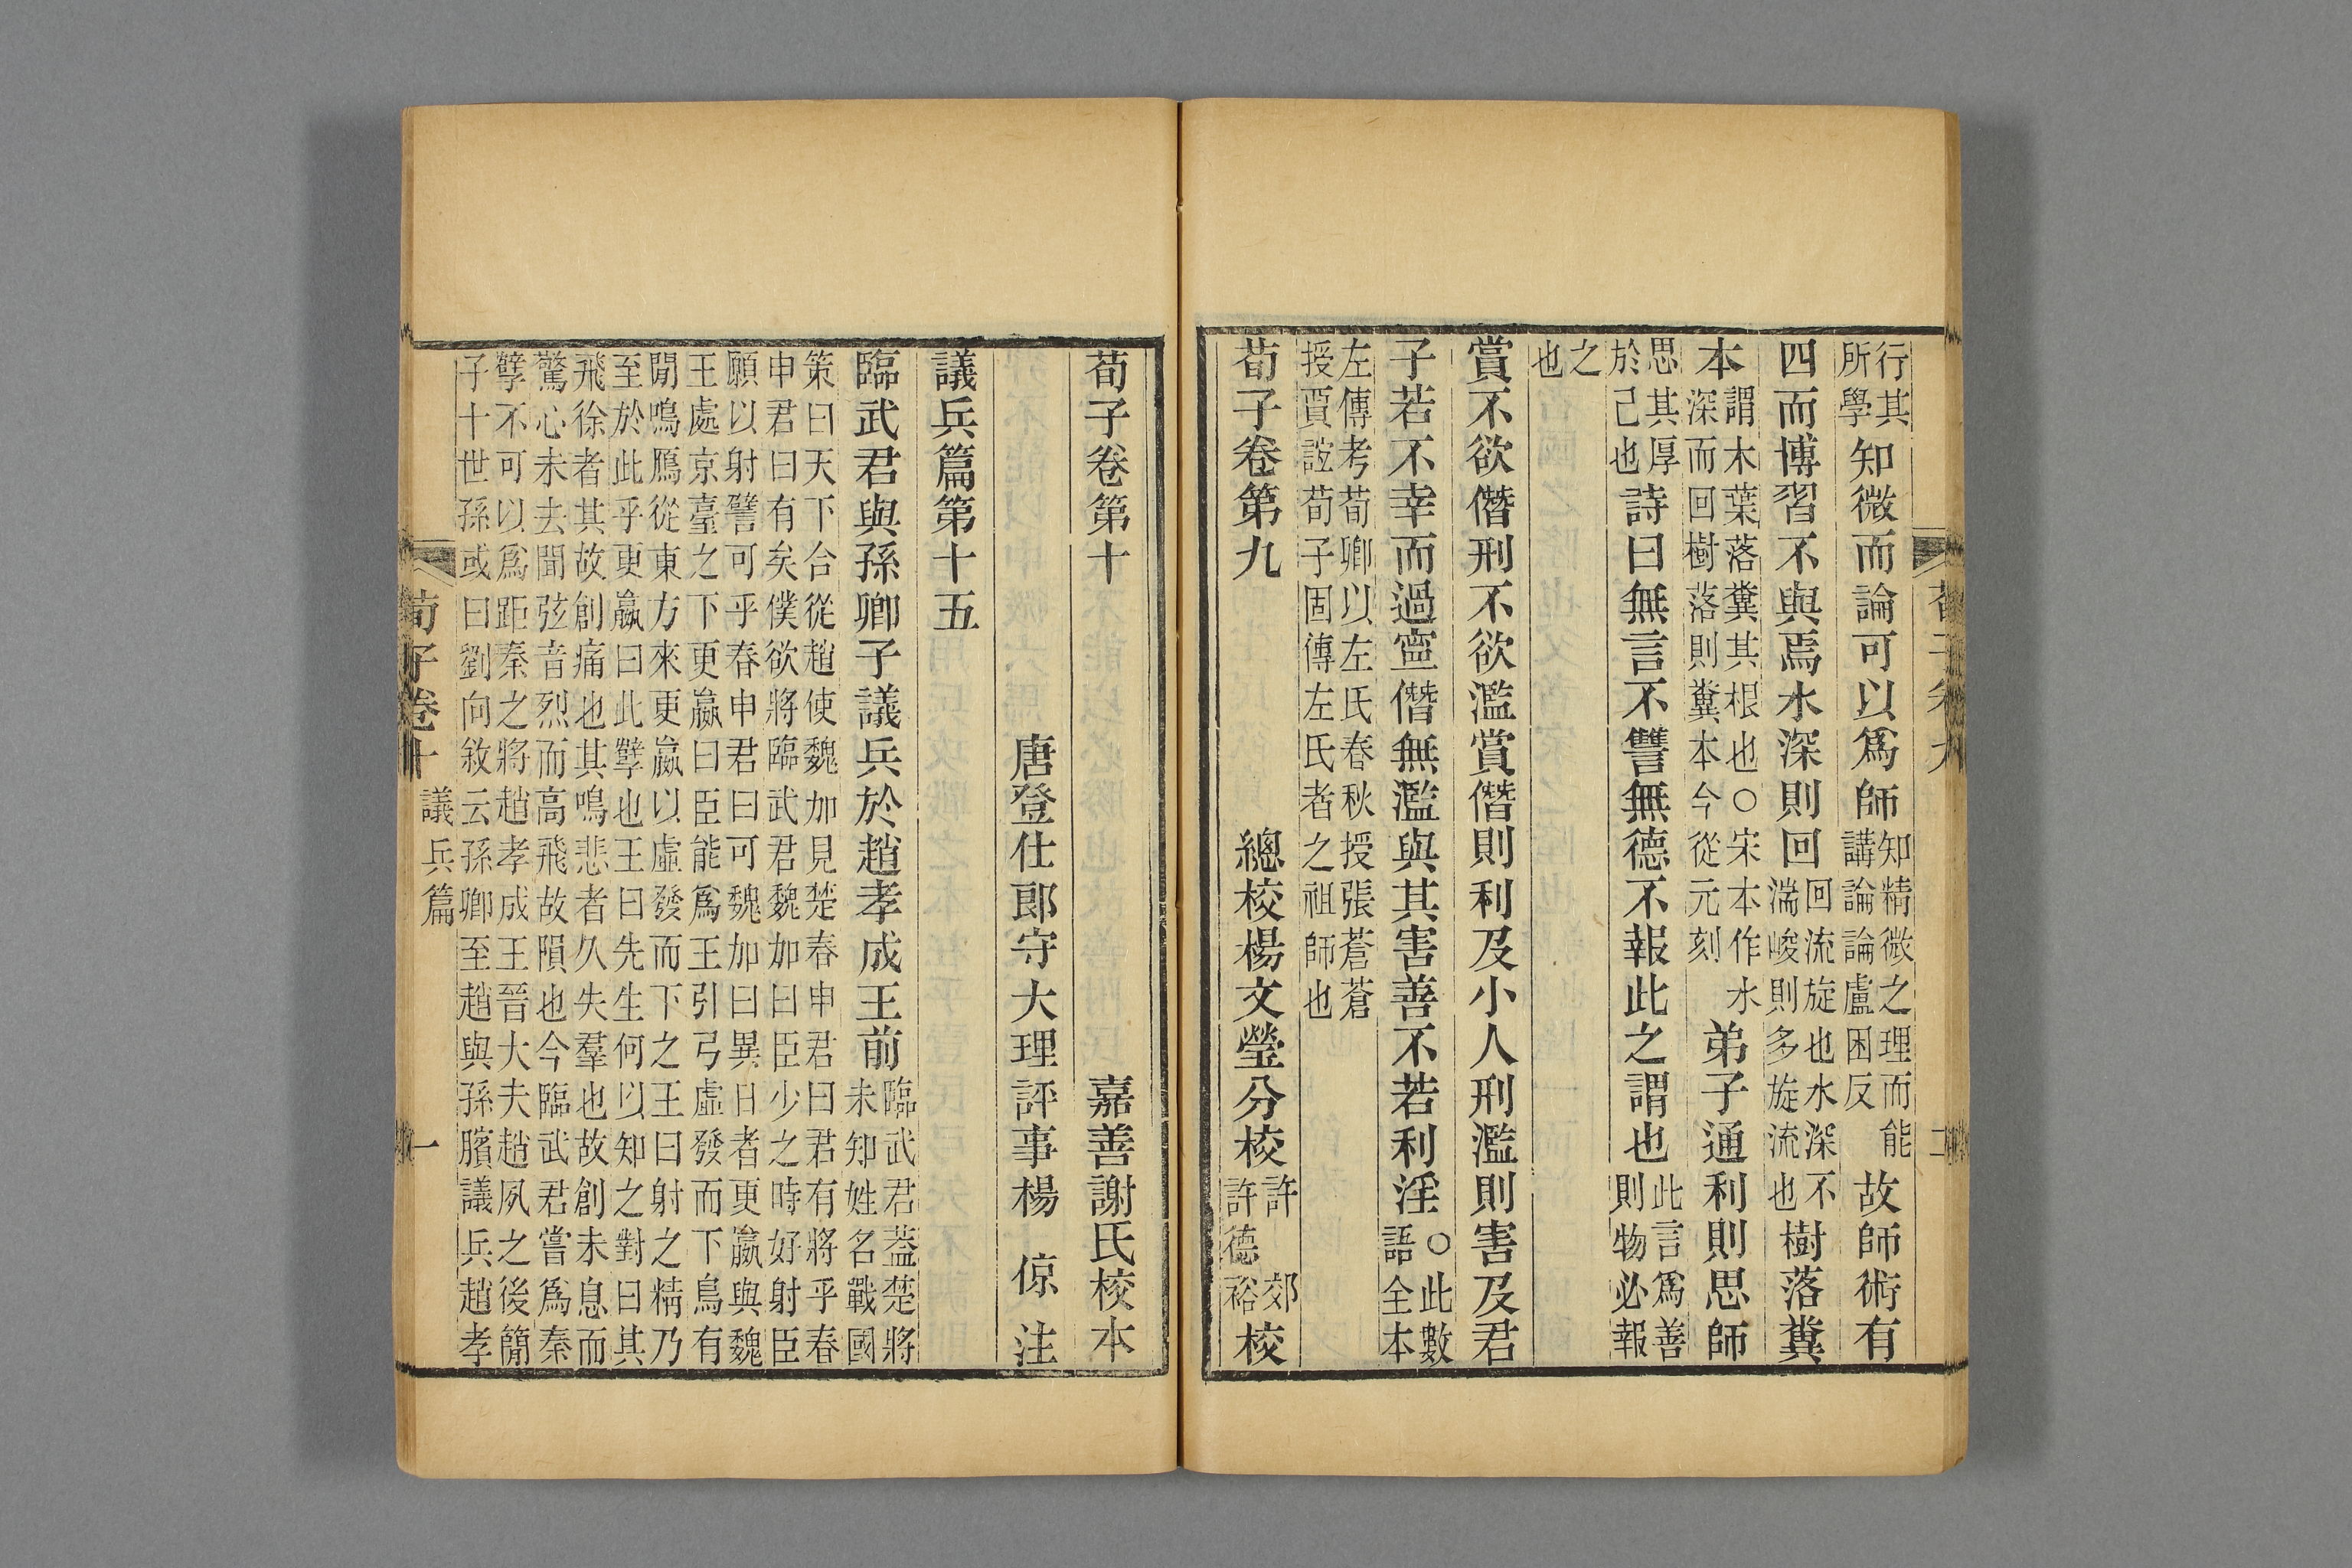 行其所學知微而論可以爲師知精微之理而能講論論盧困反故師術有
四而博習不與焉水深則回回流旋也水深不湍峻則多旋流也樹落糞
本謂木葉落糞其根也○宋本作水深而回樹落則糞本今從元刻弟子通利則思師
思其厚於己也詩曰無言不讐無德不報此之謂也此言爲善則物必報
之也
賞不欲僭刑不欲濫賞僭則利及小人刑濫則害及君
子若不幸而過寧僭無濫與其害善不若利淫○此數語全本
左傳考荀卿以左氏春秋授張蒼蒼授賈誼荀子固傳左氏者之祖師也
荀子卷第九 總校楊文瑩分校許郊許德裕校
荀子卷第十 嘉善謝氏校本
唐登仕郎守大理評事楊 倞 注
議兵篇第十五
臨武君與孫卿子議兵於趙孝成王前臨武君葢楚將未知姓名戰國
策曰天下合從趙使魏加見楚春申君曰君有將乎春
申君曰有矣僕欲將臨武君魏加曰臣少之時好射臣
願以射譬可乎春申君曰可魏加曰異日者更嬴與魏
王處京臺之下更嬴曰臣能爲王引弓虛發而下鳥有
閒鳴鴈從東方來更嬴以虛發而下之王曰射之精乃
至於此乎更嬴曰此孼也王曰先生何以知之對曰其
飛徐者其故創痛也其鳴悲者久失羣也故創未息而
驚心未去聞弦音烈而高飛故隕也今臨武君嘗爲秦
孼不可以爲距秦之將趙孝成王晉大夫趙夙之後簡
子十世孫或曰劉向敘云孫卿至趙與孫臏議兵趙孝
荀子卷十 議兵篇 一